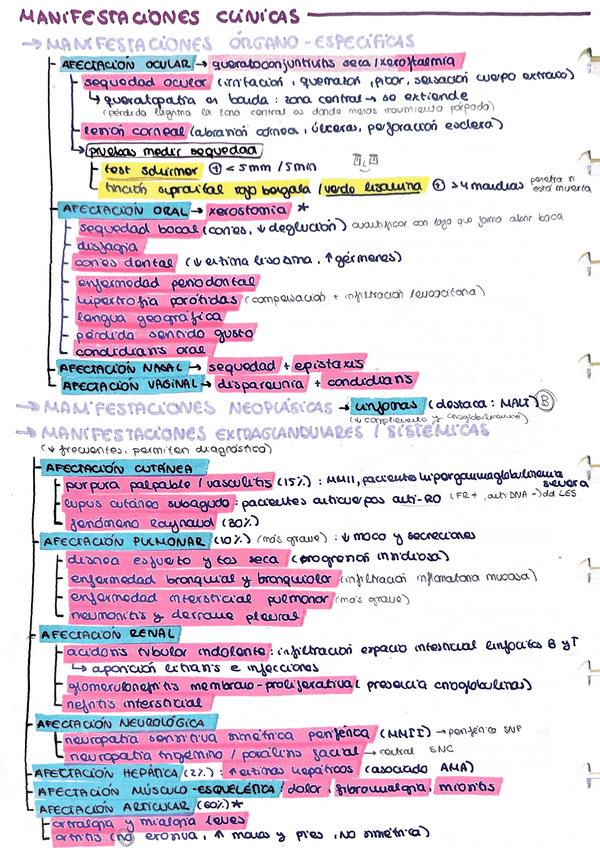 MANIFESTACIONES CLÍNICAS
→ MANIFESTACIONES ÓRGANO-ESPECÍFICAS
AFECTACIÓN OCULAR → queratoconjuntivitis seca / xeroftalmia
sequedad ocular (irritación, quemazón, picor, sensación cuerpo extraño)
↳ queratopatía en banda: zona central → se extiende
(pérdida lágrima la zona central es donde menos movimiento párpado)
lesión corneal (abrasión córnea, úlceras, perforación esclera)
pruebas medir sequedad
test schirmer ⊕ < 5mm / 5min
tinción supravital rojo bengala / verde lisamina ⊕ > 4 manchas penetra si está muerta
AFECTACIÓN ORAL → xerostomia *
sequedad bocal (caries, ↓ deglución) cuantificar con algo que forma abrir boca
disfagia
caries dental (↓ enzima lisosoma, ↑ gérmenes)
enfermedad periodontal
hipertrofia parótidas (compensación + infiltración leucocitaria)
lengua geográfica
pérdida sentido gusto
candidiasis oral
AFECTACIÓN NASAL → sequedad + epistaxis
AFECTACIÓN VAGINAL → dispareunia + candidiasis
→ MANIFESTACIONES NEOPLÁSICAS → linfomas (destaca: MALT) B
(↓ complemento y crioglobulinemia)
→ MANIFESTACIONES EXTRAGLANDULARES / SISTÉMICAS
(↓ frecuentes, permiten diagnóstico)
AFECTACIÓN CUTÁNEA
púrpura palpable / vasculitis (15%): MMII, pacientes hipergammaglobulinemia severa
lupus cutáneo subagudo: pacientes anticuerpos anti-RO (FR+, anti DNA -) dd LES
fenómeno Raynaud (30%)
AFECTACIÓN PULMONAR (10%) (más grave): ↓ moco y secreciones
disnea esfuerzo y tos seca (progresión insidiosa)
enfermedad bronquial y bronquiolar (infiltración inflamatoria mucosa)
enfermedad intersticial pulmonar (más grave)
neumonitis y derrame pleural
AFECTACIÓN RENAL
acidosis tubular indolente: infiltración espacio intersticial linfocitos B y T
↳ aparición litiasis e infecciones
glomerulonefritis membrano-proliferativa (presencia crioglobulinas)
nefritis intersticial
AFECTACIÓN NEUROLÓGICA
neuropatía sensitiva simétrica periférica (MMII) → periférico SNP
neuropatía trigémino / parálisis facial → central SNC
AFECTACIÓN HEPÁTICA (2%): ↑ enzimas hepáticos (asociado AMA)
AFECTACIÓN MÚSCULO-ESQUELÉTICA: dolor, fibromialgia, miositis
AFECTACIÓN ARTICULAR (60%) *
artralgia y mialgia leves
artritis (no erosiva, ↑ manos y pies, NO simétrica)